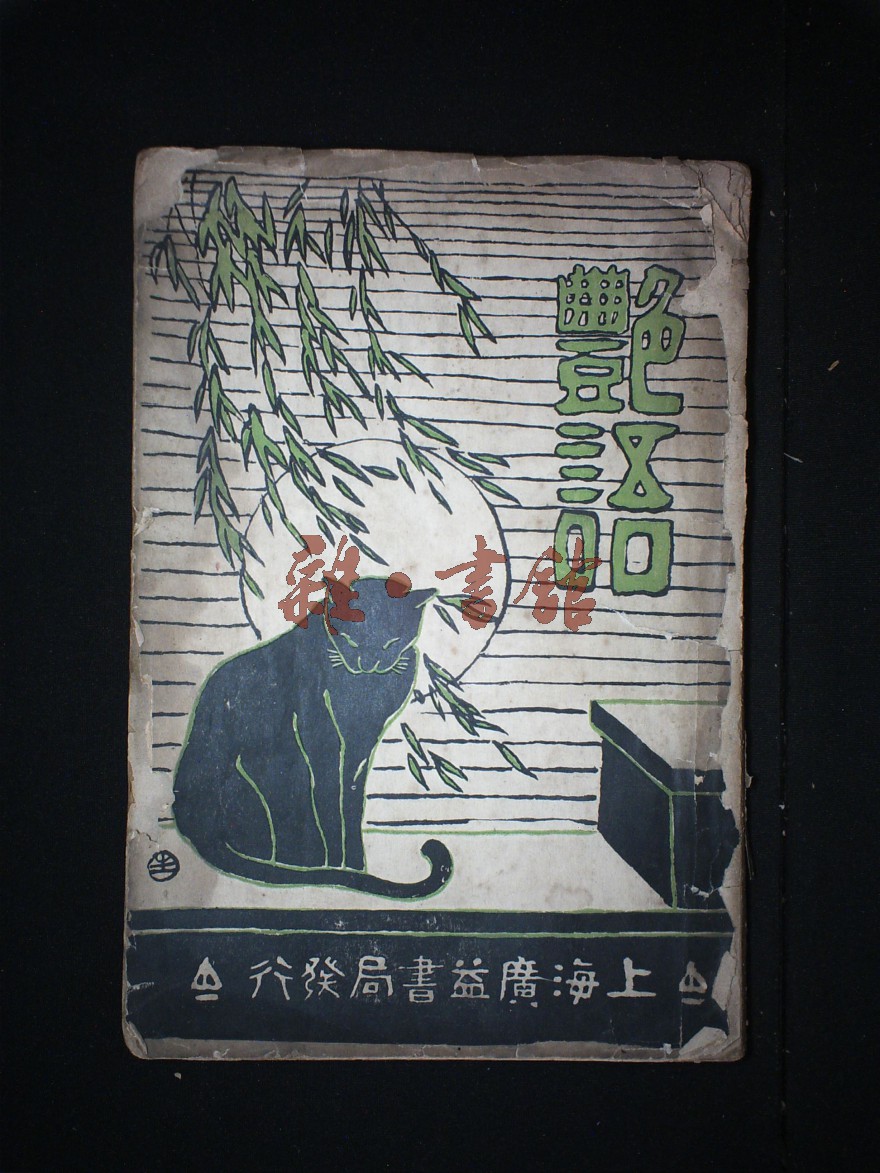 艷語
雜·書館
上海廣益書局發行